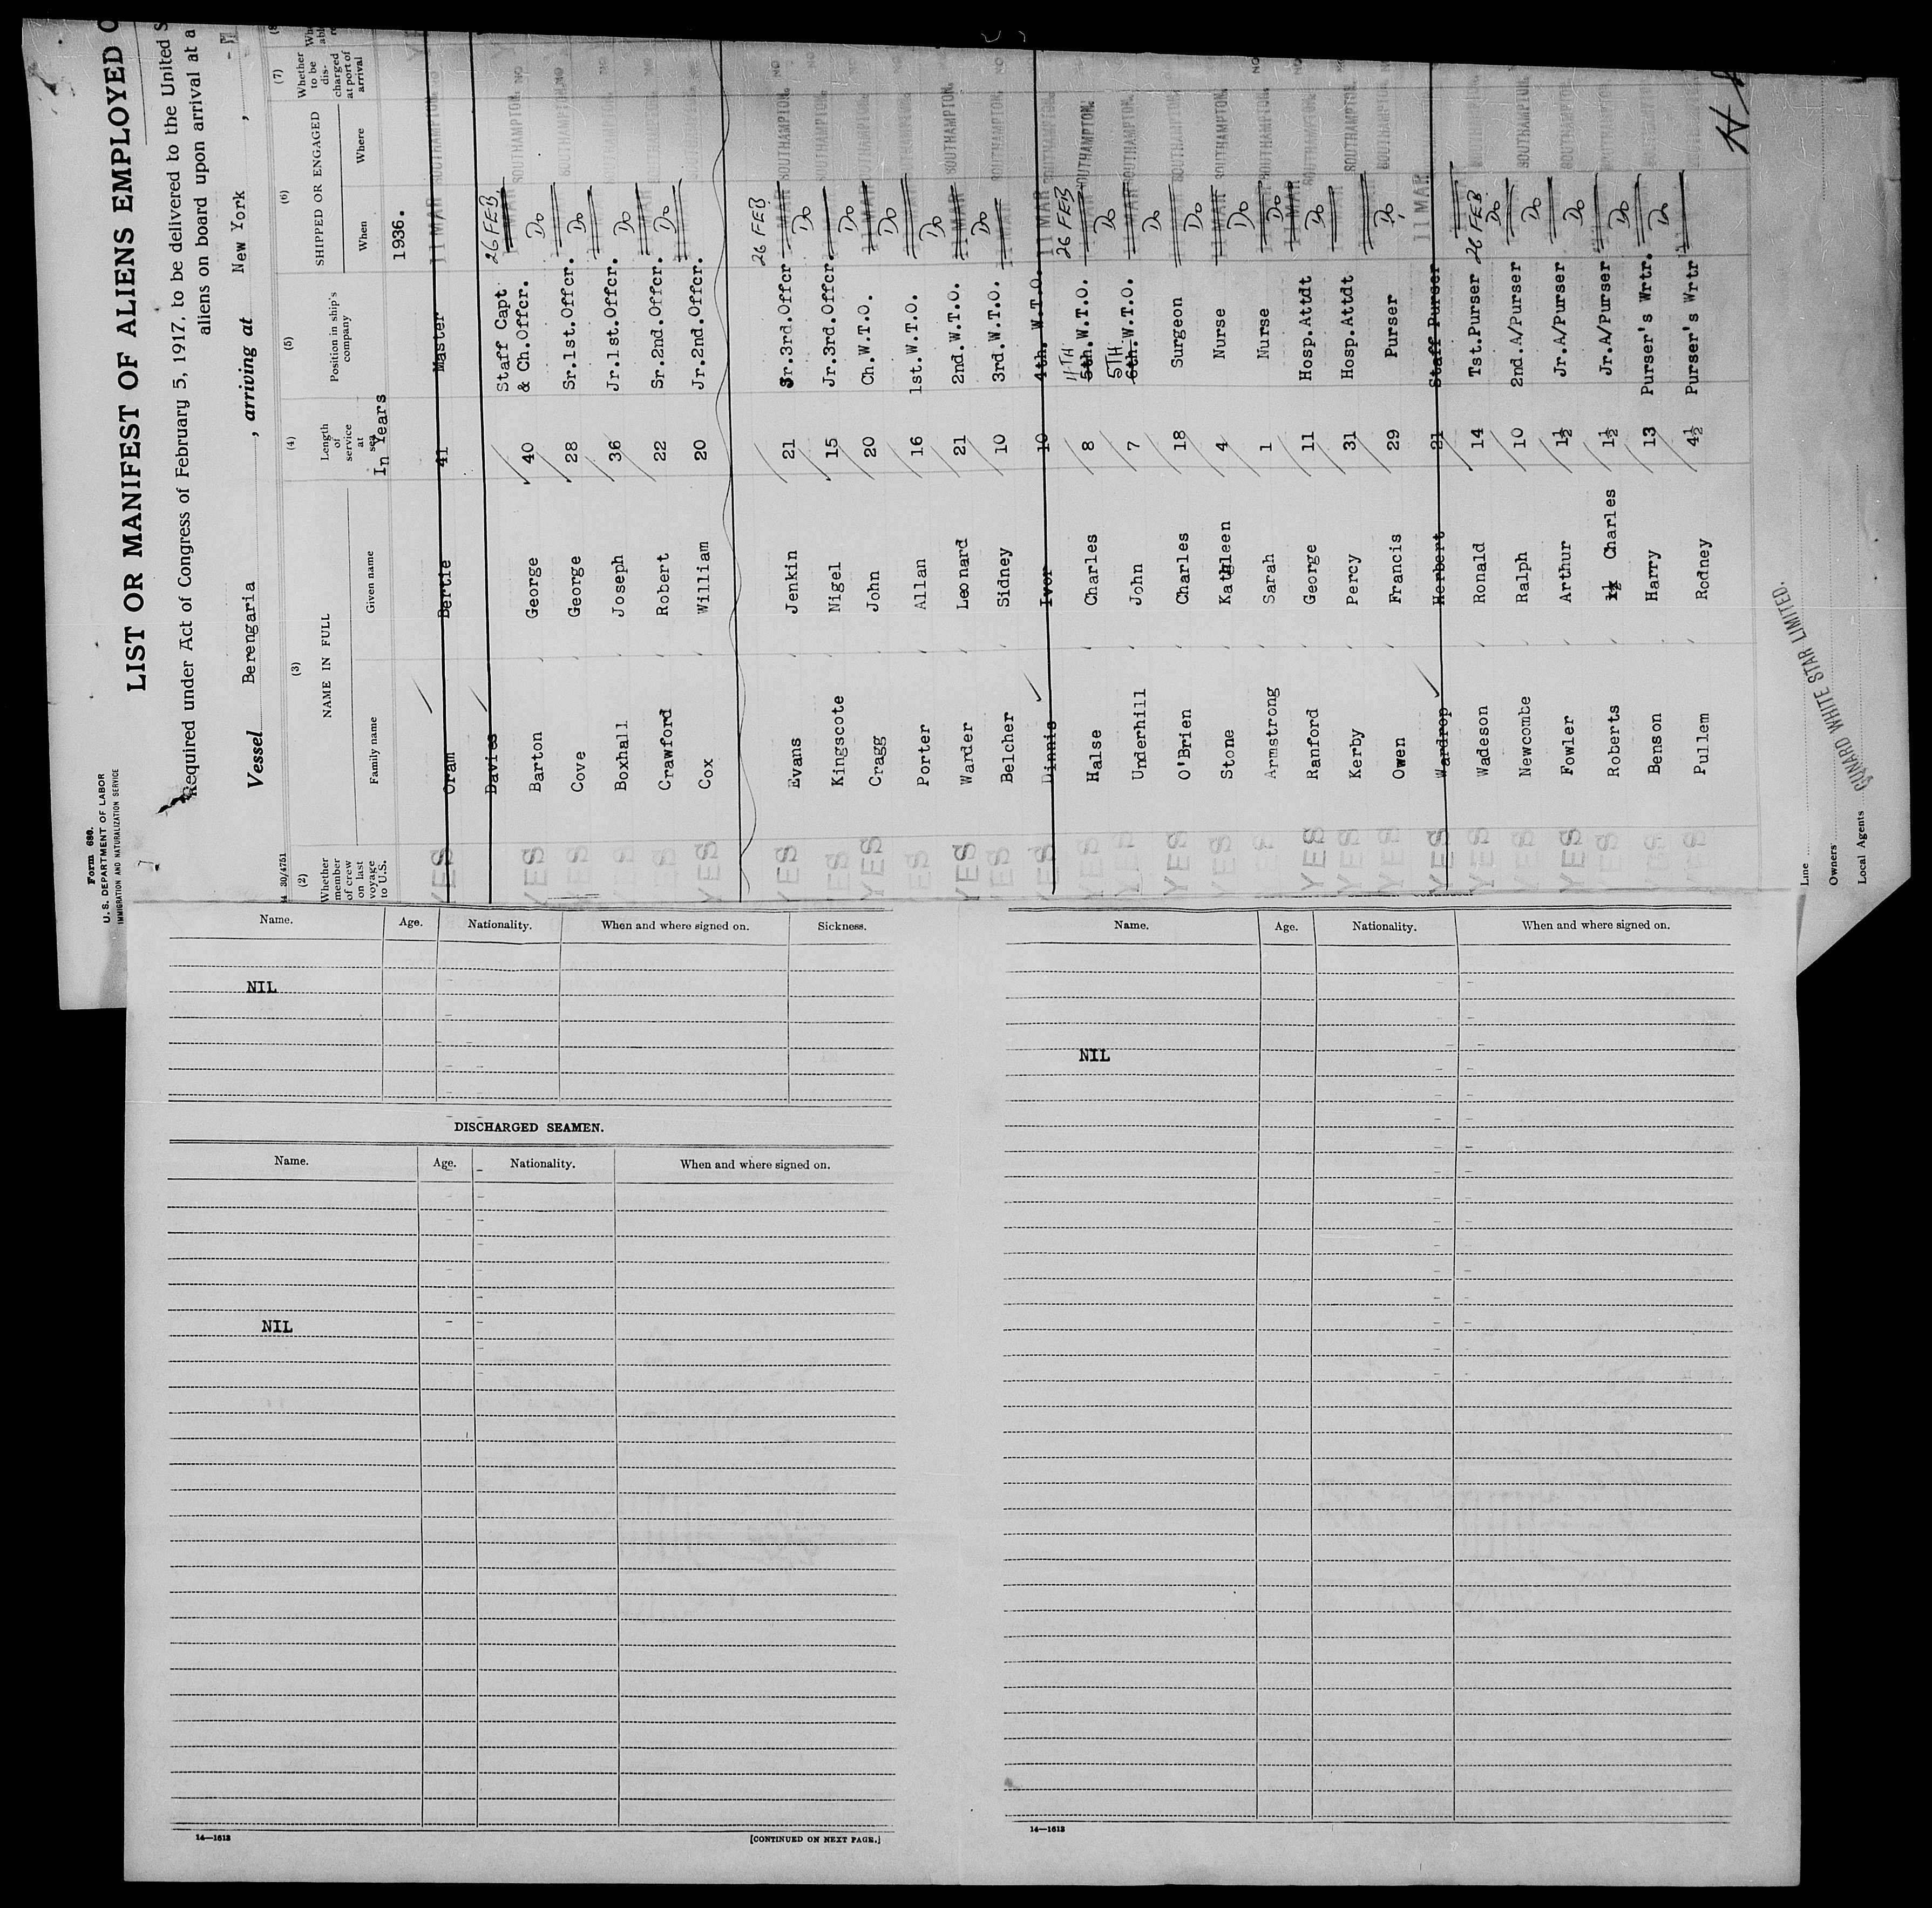 Form 680.
U. S. DEPARTMENT OF LABOR
IMMIGRATION AND NATURALIZATION SERVICE
LIST OR MANIFEST OF ALIENS EMPLOYED O
Required under Act of Congress of February 5, 1917, to be delivered to the United S
aliens on board upon arrival at a
Vessel Berengaria , arriving at New York ,
30/4751
(2) Whether member of crew on last voyage to U.S.
(3) NAME IN FULL
Family name Given name
(4) Length of service at sea
In Years
(5) Position in ship's company
(6) SHIPPED OR ENGAGED
When Where
(7) Whether to be discharged at port of arrival
1936.
YES Oram Bertie 41 Master 11 MAR SOUTHAMPTON. NO
Davies Staff Capt 26 FEB
YES Barton George 40 & Ch.Offcr. Do SOUTHAMPTON. NO
YES Cove George 28 Sr.1st.Offcr. Do SOUTHAMPTON. NO
YES Boxhall Joseph 36 Jr.1st.Offcr. Do SOUTHAMPTON. NO
YES Crawford Robert 22 Sr.2nd.Offcr. Do SOUTHAMPTON. NO
YES Cox William 20 Jr.2nd.Offcr. SOUTHAMPTON. NO
YES Evans Jenkin 21 Sr.3rd.Offcr 26 FEB Do SOUTHAMPTON. NO
YES Kingscote Nigel 15 Jr.3rd.Offcr. Do SOUTHAMPTON. NO
YES Cragg John 20 Ch.W.T.O. Do SOUTHAMPTON. NO
YES Porter Allan 16 1st.W.T.O. Do SOUTHAMPTON. NO
YES Warder Leonard 21 2nd.W.T.O. 11 MAR Do SOUTHAMPTON. NO
YES Belcher Sidney 10 3rd.W.T.O. 11 MAR SOUTHAMPTON. NO
YES Dinnis Ivor 10 4th. W.T.O. 11 MAR SOUTHAMPTON.
YES Halse Charles 8 5th.W.T.O. 26 FEB Do SOUTHAMPTON.
YES Underhill John 7 5TH 6th.W.T.O. 11 MAR Do SOUTHAMPTON.
YES O'Brien Charles 18 Surgeon Do SOUTHAMPTON.
YES Stone Kathleen 4 Nurse 11 MAR Do SOUTHAMPTON.
YES Armstrong Sarah 1 Nurse Do SOUTHAMPTON. NO
YES Ranford George 11 Hosp.Attdt 11 MAR Do SOUTHAMPTON. NO
YES Kerby Percy 31 Hosp.Attdt SOUTHAMPTON. NO
YES Owen Francis 29 Purser Do SOUTHAMPTON. NO
YES Wardrop Herbert 21 Staff Purser 11 MAR
YES Wadeson Ronald 14 Tst.Purser 26 FEB Do SOUTHAMPTON.
YES Newcombe Ralph 10 2nd.A/Purser Do SOUTHAMPTON. NO
YES Fowler Arthur 1½ Jr.A/Purser Do SOUTHAMPTON.
YES Roberts 1½ Charles 1½ Jr.A/Purser Do SOUTHAMPTON.
YES Benson Harry 13 Purser's Wrtr. Do SOUTHAMPTON.
YES Pullem Rodney 4½ Purser's Wrtr SOUTHAMPTON.
Line
Owners
Local Agents CUNARD WHITE STAR LIMITED.
Name. Age. Nationality. When and where signed on. Sickness.
NIL
DISCHARGED SEAMEN.
Name. Age. Nationality. When and where signed on.
NIL
14—1613
[CONTINUED ON NEXT PAGE.]
Name. Age. Nationality. When and where signed on.
NIL
14—1613